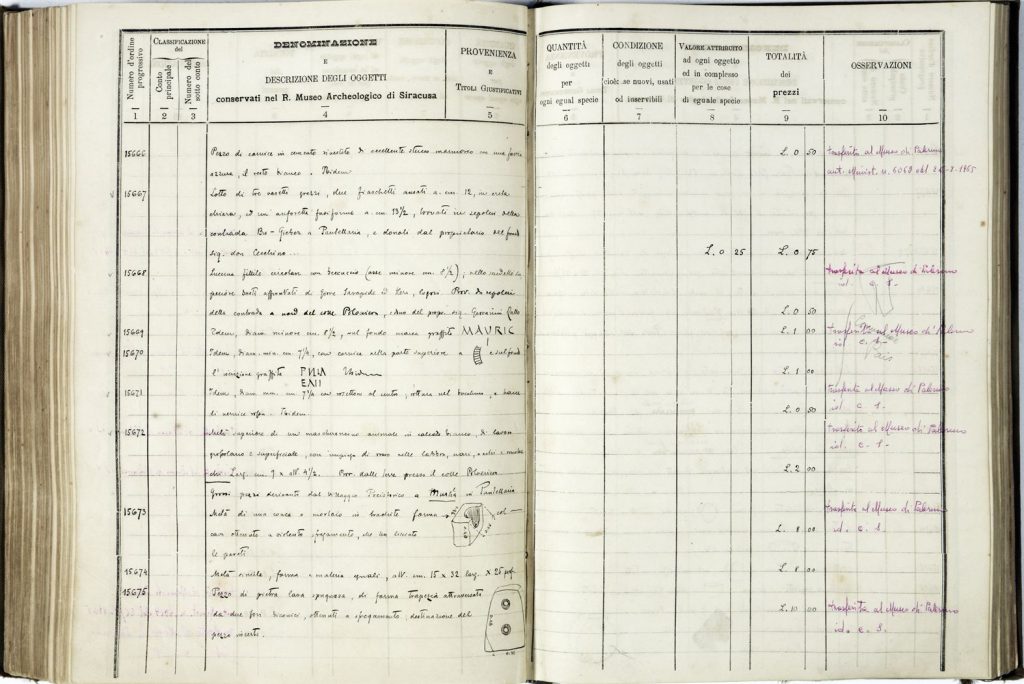 Numero d'ordine progressivo
CLASSIFICAZIONE del
Conto principale
Numero del sotto conto
DENOMINAZIONE
E
DESCRIZIONE DEGLI OGGETTI
conservati nel R. Museo Archeologico di Siracusa
PROVENIENZA
E
TITOLI GIUSTIFICATIVI
QUANTITÀ
degli oggetti
per
ogni egual specie
CONDIZIONE
degli oggetti
cioè se nuovi, usati
od inservibili
VALORE ATTRIBUITO
ad ogni oggetto
ed in complesso
per le cose
di eguale specie
TOTALITÀ
dei
prezzi
OSSERVAZIONI
1 2 3 4 5 6 7 8 9 10
15666 Pezzo di cornice in cemento rivestito di eccellente stucco marmoreo con una fascia L. 0 50 trasferita al Museo di Palermo
azzurra, il resto bianco. Ibidem aut. Minist. n. 6069
15667 Lotto di tre vasetti grezzi, due fiaschetti ansati a. cm. 12, in creta
chiara, ed un anforetta fusiforme a. cm. 13½, trovati in sepolcri della
contrada Bu-Geber a Pantelleria, e donati dal proprietario del fondo
sig. don Cecchino... L. 0 25 L. 0 75
15668 Lucerna fittile circolare con beccuccio (asse minore cm. 8½); nello trasferita al Museo di Palermo
busti affrontati di Giove Serapide ed Iside, logori. Prov. da sepolcri id. c. s.
della contrada a nord del colle L. 0 50
15669 Idem, diam. minore cm. 8½, sul fondo marca graffita MAURIC L. 1 00 trasferita al Museo di Palermo
15670 Idem, diam. min. cm. 7½, con cornice nella parte superiore a e sul fondo id. c. s.
l'iscrizione graffita Ibidem L. 1 00
15671 Idem, diam. min. cm. 7½ con rosettone al centro, rottura nel beccuccio, e tracce trasferita al Museo di Palermo
di vernice rossa. Ibidem. L. 0 50 id. c. s.
15672 Metà superiore di un mascheroncino animale in calcare bianco, di lavoro trasferito al Museo di Palermo
grossolano e superficiale, con impiego di rosso nelle labbra, nari, id. c. s.
Larg. cm. 7 x alt. 4½. Prov. dalle terre presso il colle L. 2 00
Grossi pezzi derivanti dal villaggio Preistorico a Mursia in Pantelleria
15673 Metà di una conca o mortaio in trachite forma → col trasferita al Museo di Palermo
cavo ottenuto a violento sfregamento, che ha lisciato L. 8 00 id. c. s.
le pareti
15674 Metà simile, forma e materia eguali, alt. cm. 15 x 32 larg. x 25 prof. L. 8 00
15675 Pezzo di pietra lava spugnosa, di forma trapezia attraversato
da due fori biconici, ottenuti a sfregamento, destinazione del L. 10 00 trasferita al Museo di Palermo
pezzo incerta. id. c. s.